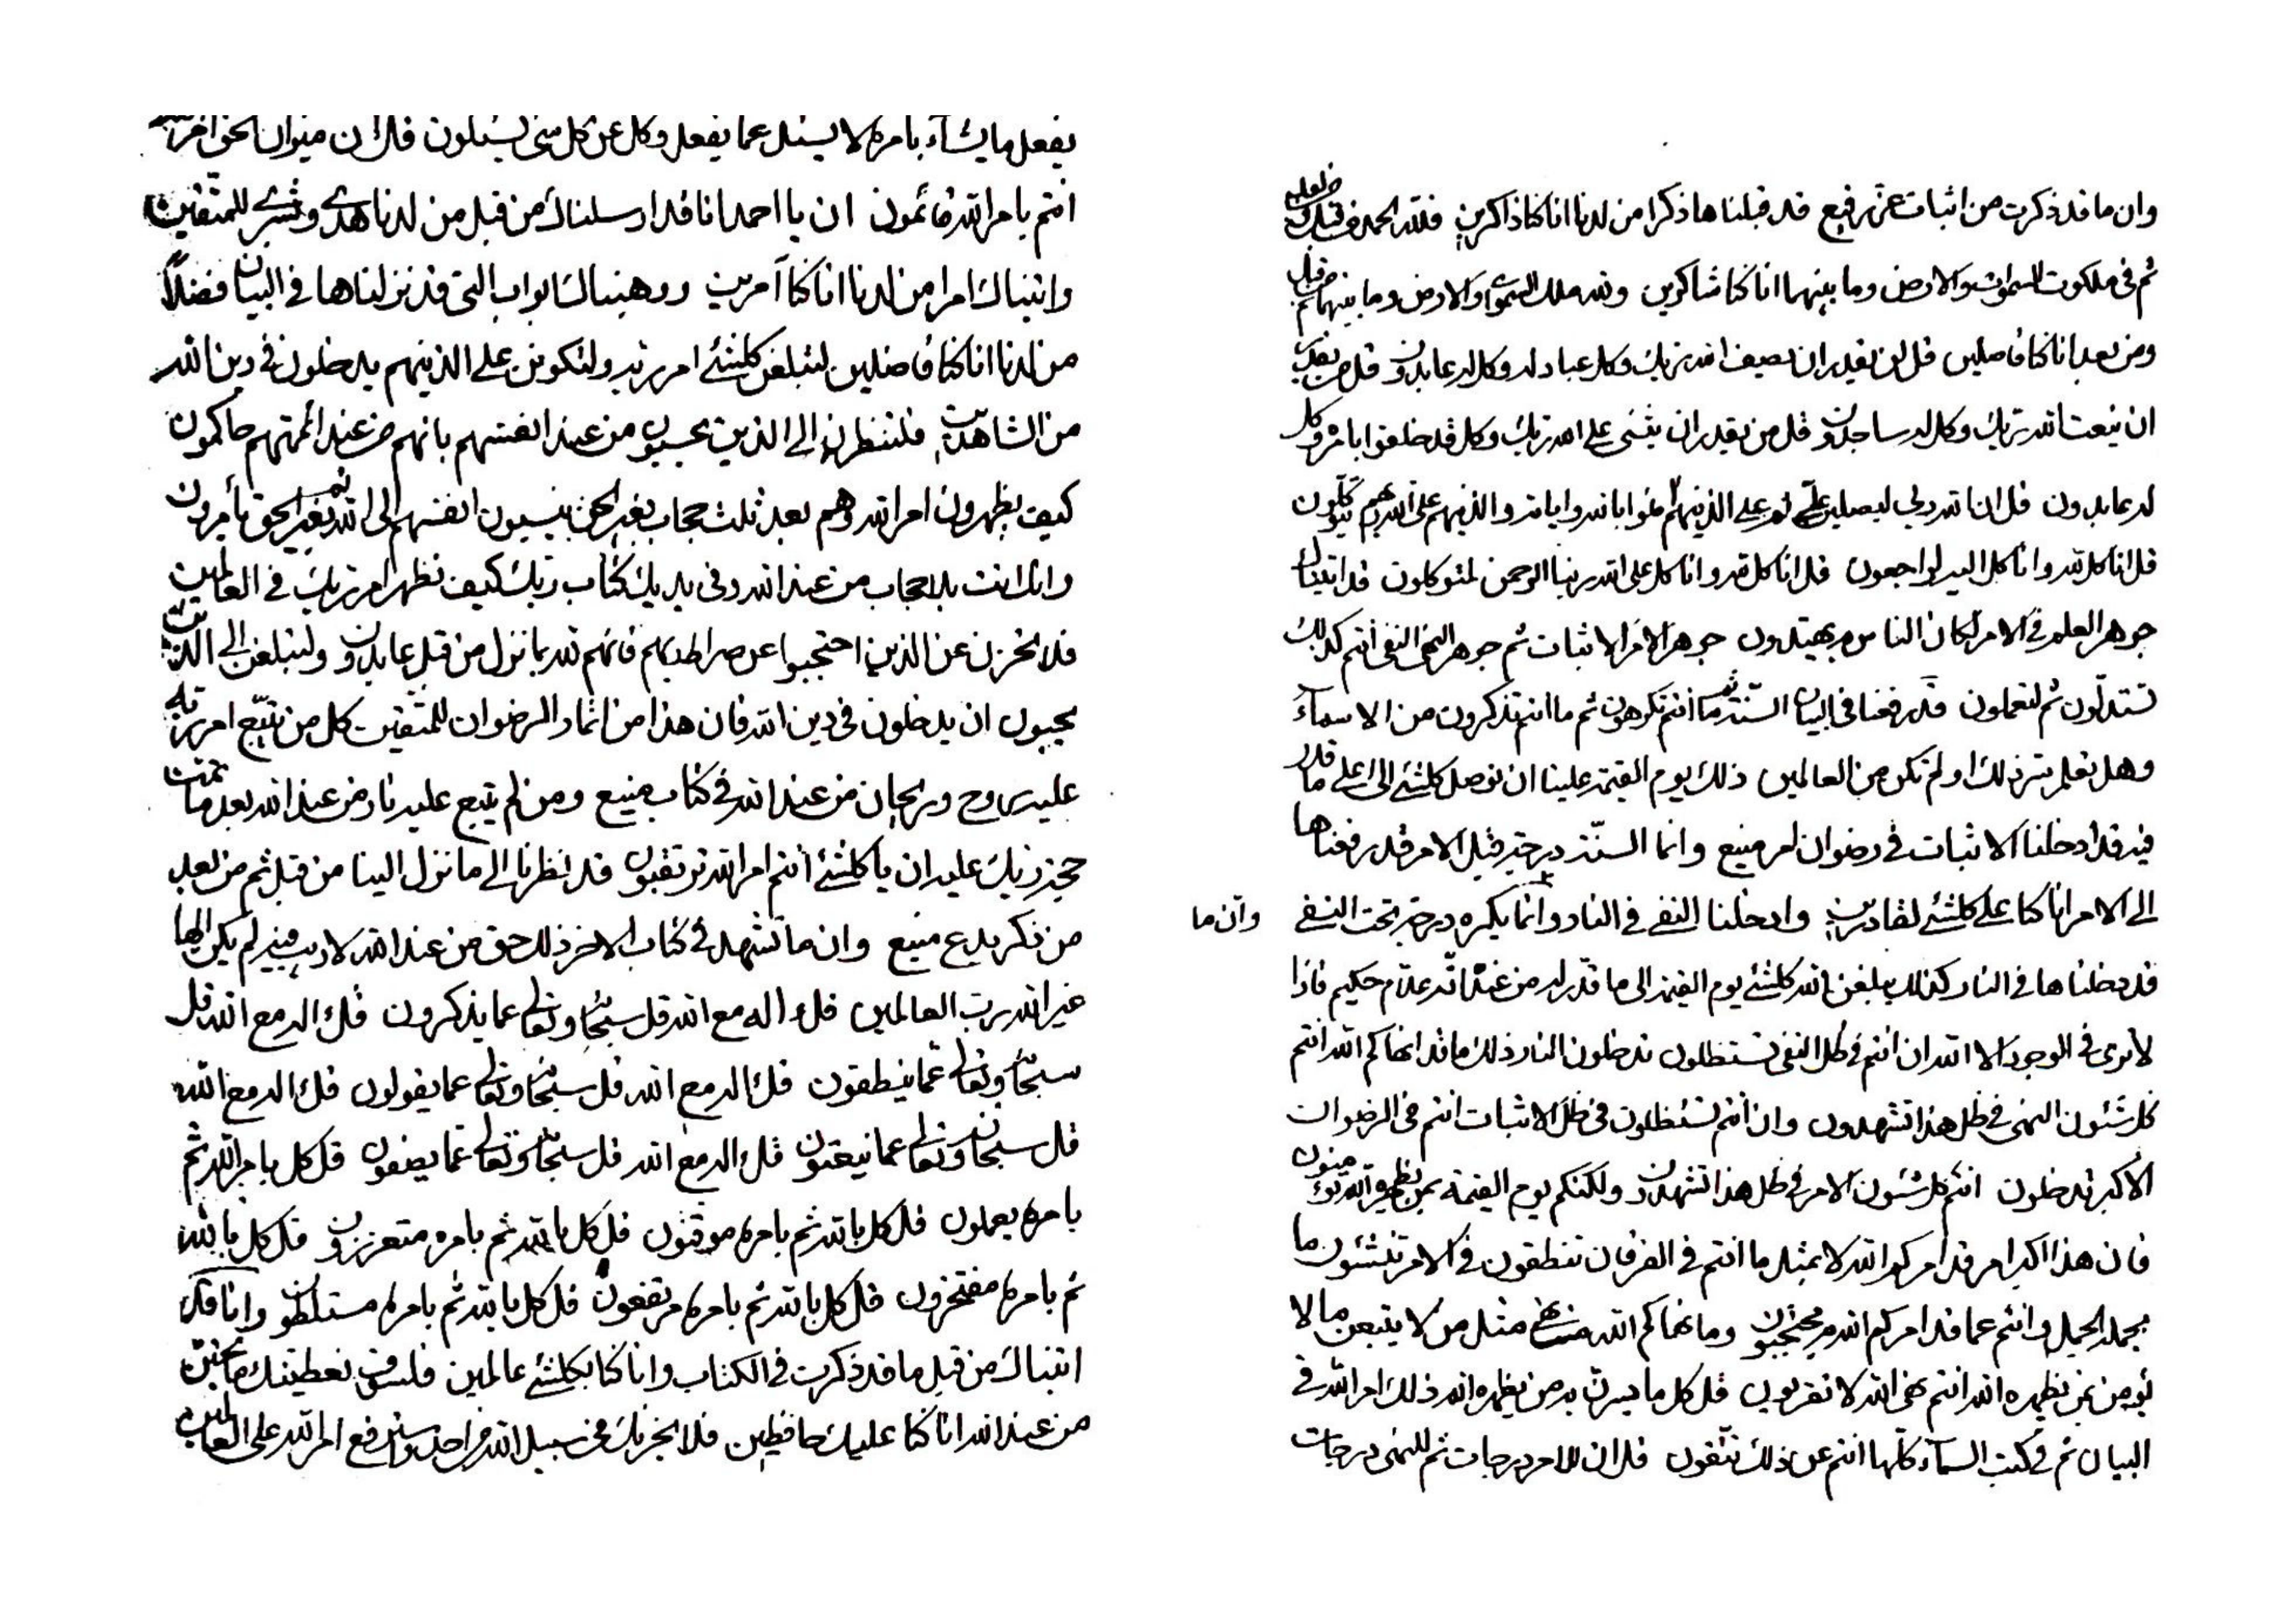 وان ما قد ذكرت من اثبات عز رفيع قد قبلناها ذكرا من لدنا انا كنا ذاكرين فلله الحمد من قبلك
ثم في ملكوت السموات والارض وما بينهما انا كنا شاكرين ولله ملك السموات والارض وما بينهما من قبل ثم
ومن بعد انا كنا فاضلين قل من يقدر ان يصف الله ربك وكل عباد له وكل له عابدون قل من يقدر
ان ينعت الله ربك وكل له ساجدون قل من يقدر ان يثنى على الله ربك وكل قد خلقوا بامره وكل
له عابدون قل ان الله ربي ليصلين على الذينهم امنوا بالله واياته والذينهم على الله ربهم يتكلون
قل انا كل لله وانا كل اليه لراجعون قل انا كل لله وانا كل على الله ربنا الرحمن لمتوكلون قد اتيناك
جوهر العلم في الامر لكان الناس به يهتدون جوهر الامر الاثبات ثم جوهر النهى النفى انتم كذلك
تستدلون ثم لتعملون قد رفعنا في البيان السنة ثم ما انتم تكرهون ثم ما انتم تذكرون من الاسماء
وهل تعلم سر ذلك او لم تكن من العالمين ذلك يوم القيمة علينا ان نوصل كلشئ الى اعلى ما قدر
فيه قد ادخلنا الاثبات في رضوان امر منيع وانما السنة درجة قبل الامر قد رفعناها
الى الامر انا كنا على كلشئ لقادرين وادخلنا النفى في النار وانما يكره درجة تحت النفى وان ما
قد دخلناها في النار كذلك يبلغن الله كلشئ يوم القيمة الى ما قدر له من عنده انه علام حكيم فاذا
لا نرى في الوجود الا الله ان انتم في ظل النفى تستظلون تدخلون النار ذلك ما قد انهاكم الله انتم
كل شئون النهى في ظل هذا تشهدون وان انتم تستظلون في ظل الاثبات انتم في الرضوان
الاكبر تدخلون انتم كل شئون الامر في ظل هذا تشهدون ولكنكم يوم القيمة بمن يظهره الله تؤمنون
فان هذا اكبر امر قد امركم الله لا بمثل ما انتم في الفرقان تنطقون في الامر تنشئون ما
بجمد الجميل وانتم عما قد امركم الله به محتجبون وما نهاكم الله عنه نهى مثل من لا يتبعن ما لا
يؤمن بمن يظهره الله انتم نهى الله لا تقربون قل كل ما يسرن به من يظهره الله ذلك امر الله في
البيان ثم في كتب السماء كلها انتم عن ذلك تتقون قل ان للامر درجات ثم للنهى درجات
يفعل ما يشاء بامره لا يسئل عما يفعل وكل عن كل شئ يسئلون قل ان ميزان الحق امر الله
انتم بامر الله قائمون ان يا احمد انا قد ارسلناك من قبل من لدنا هدى وبشرى للمتقين
واتيناك امرا من لدنا انا كنا آمرين ووهبناك ابواب التي قد نزلناها في البيان فضلا
من لدنا انا كنا فاضلين لتبلغن كلشئ امر ربه ولتكونن على الذينهم يدخلون في دين الله
من الشاهدين فلتنظرن الى الذين يحسبون من عند انفسهم بانهم من عند ائمتهم حاكمون
كيف يظهرون امر الله وهم بعد ثلث حجاب بغير الحق ينسبون انفسهم الى الله ثم بغير الحق يأمرون
وانك انت بلا حجاب من عند الله وفي يديك كتاب ربك كيف تظهر امر ربك في العالمين
فلا تحزن عن الذين احتجبوا عن صراط ربهم فانهم لله بما نزل من قبل عابدون ولتبلغن الى الذين
يحبون ان يدخلون في دين الله فان هذا من اثمار الرضوان للمتقين كل من يتبع امر ربه
عليه روح وريحان من عند الله في كتاب منيع ومن لم يتبع عليه نار من عند الله بعد ما تمت
حجة ربك عليه ان يا كلشئ انتم امر الله ترتقبون قد نظرنا الى ما نزل الينا من قبل ثم من بعد
من ذكر بدع منيع وان ما تشهد في كتاب الاخر ذلك حق من عند الله لا ريب فيه لم يكن الها
غير الله رب العالمين قل ءاله مع الله قل سبحانه وتعالى عما يذكرون قل ءاله مع الله قل
سبحانه وتعالى عما ينطقون قل ءاله مع الله قل سبحانه وتعالى عما يقولون قل ءاله مع الله
قل سبحانه وتعالى عما ينعتون قل ءاله مع الله قل سبحانه وتعالى عما يصفون قل كل بامر الله ثم
بامره يعملون قل كل بالله ثم بامره موقنون قل كل بالله ثم بامره متعززون قل كل بالله
ثم بامره مفتخرون قل كل بالله ثم بامره مرتفعون قل كل بالله ثم بامره مستلطون وانا قد
اتيناك من قبل ما قد ذكرت في الكتاب وانا كنا بكلشئ عالمين فلسوف نعطينك ما تحبن
من عند الله انا كنا عليك حافظين فلا يحزنك في سبيل الله من احد وسنرفع امر الله على العالمين